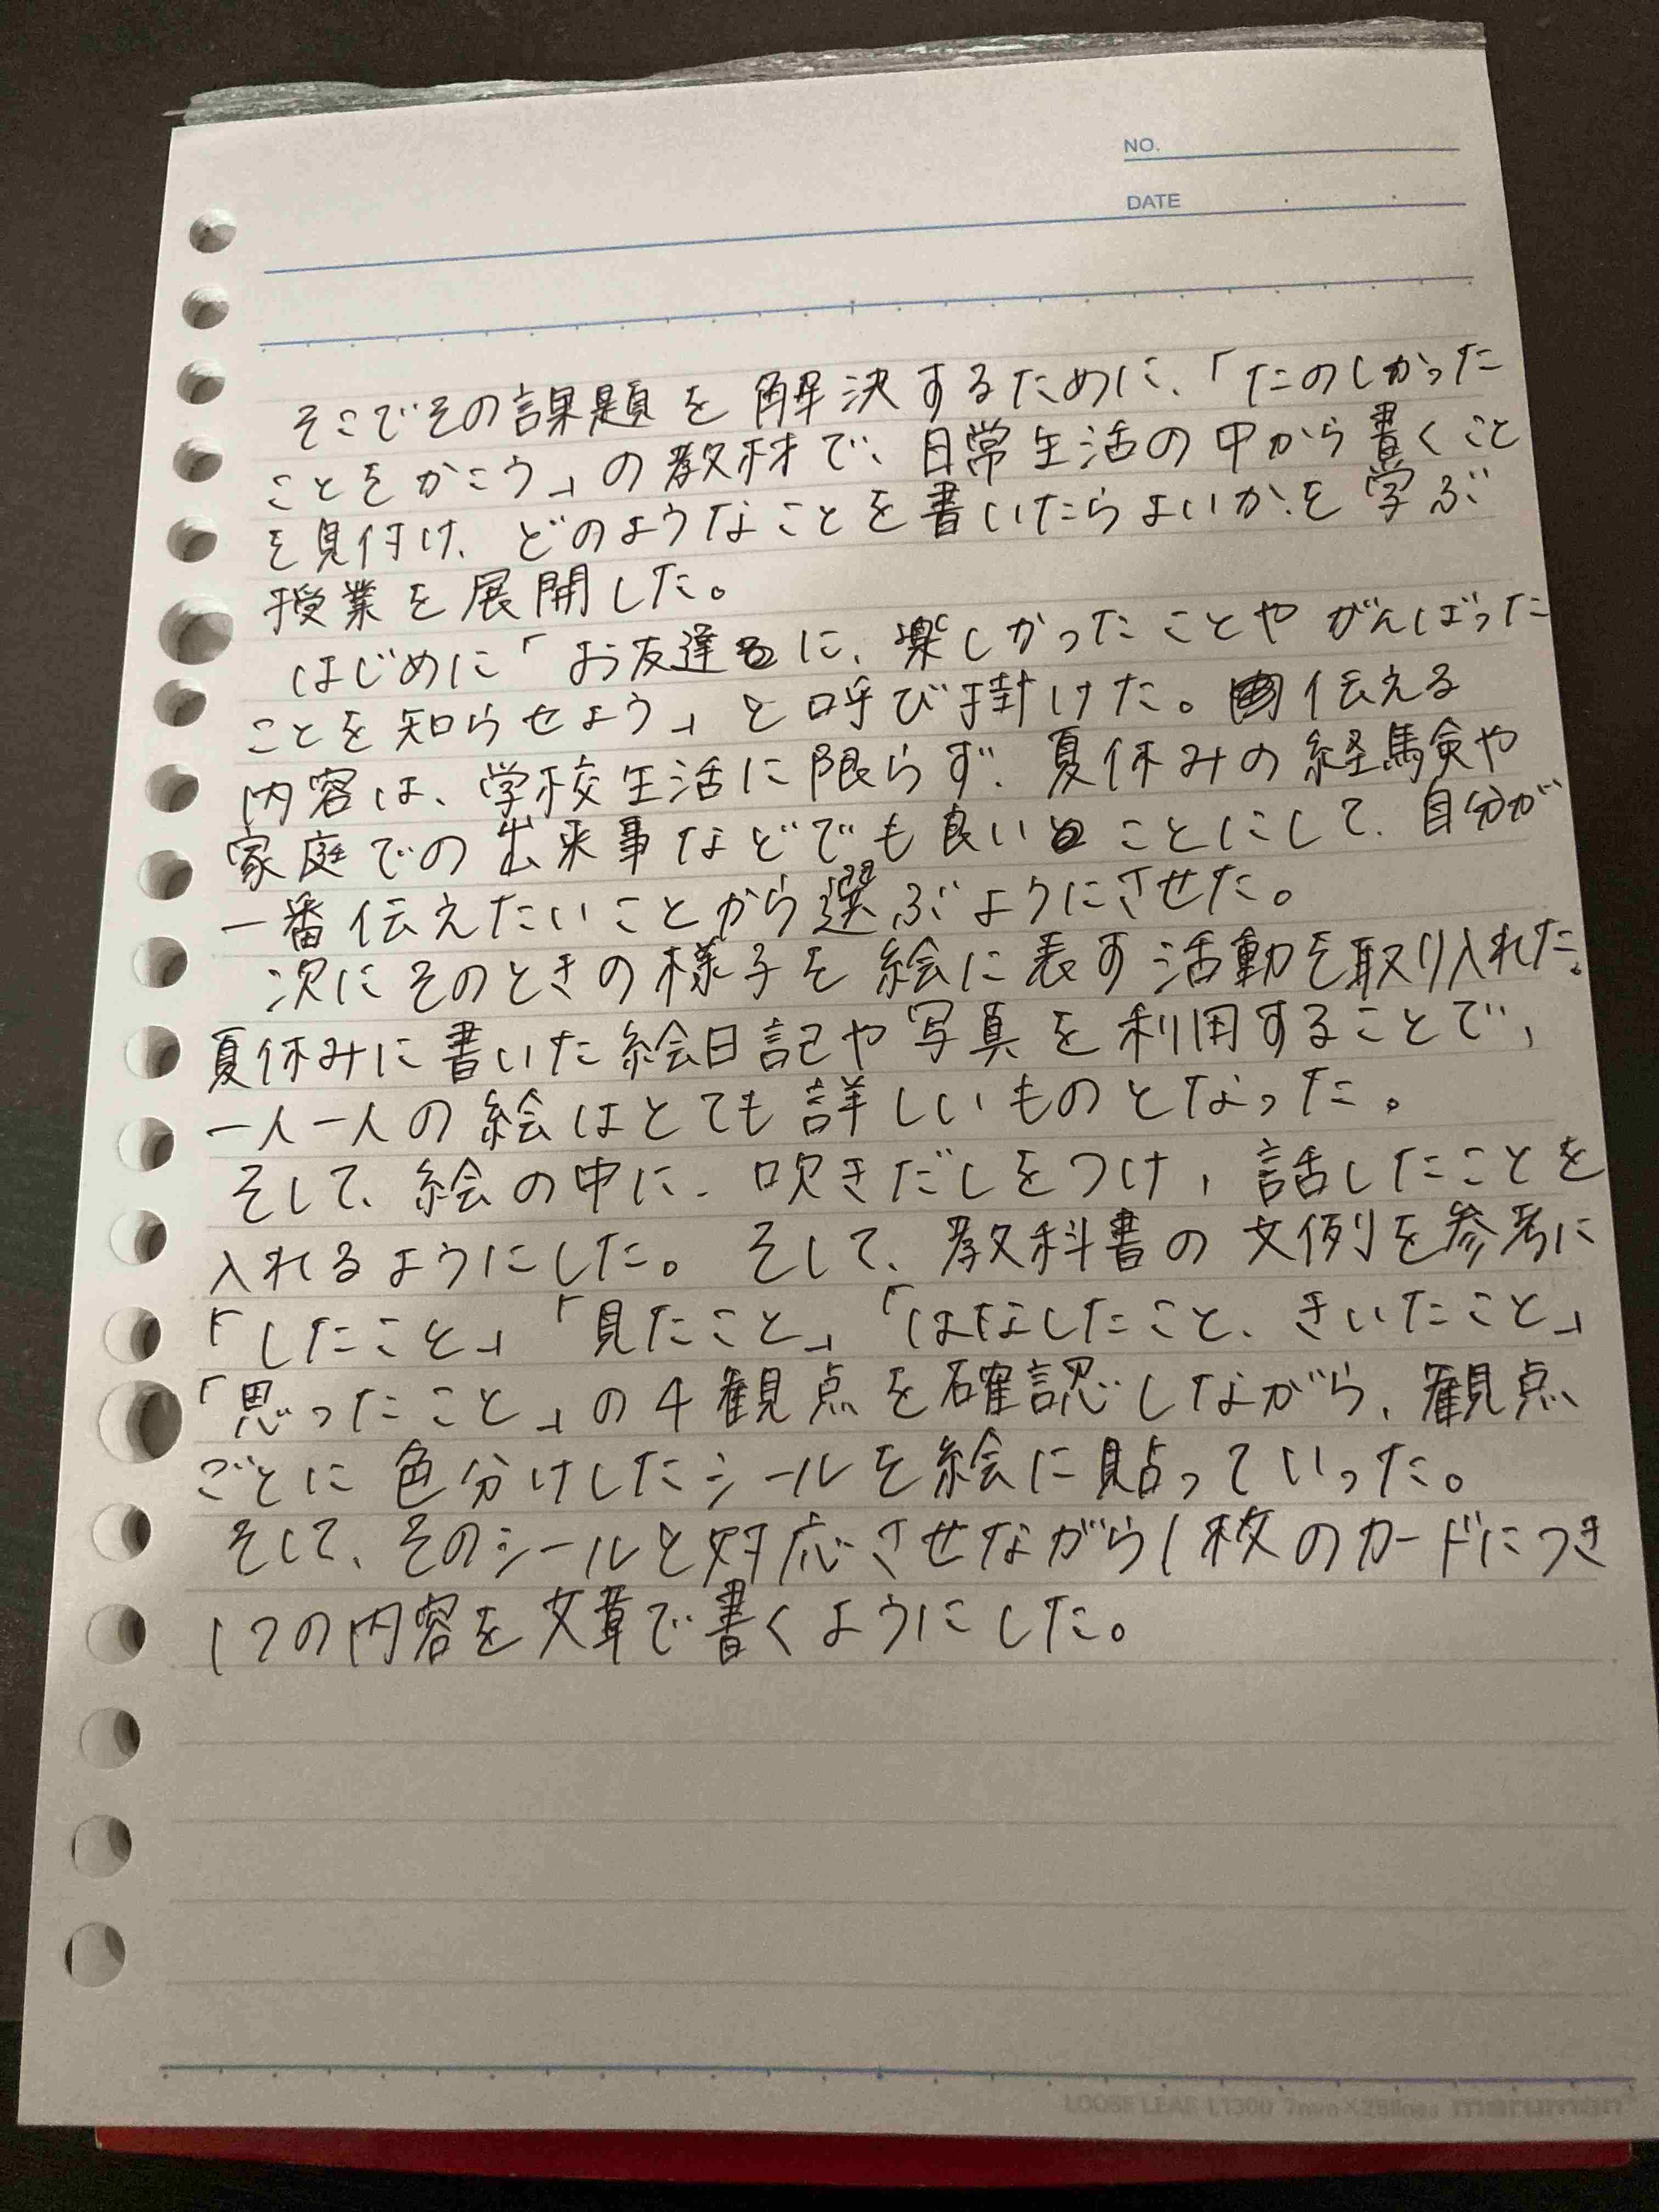 NO.
DATE
そこでその課題を解決するために、「たのしかった
ことをかこう」の教材で、日常生活の中から書くこと
を見付け、どのようなことを書いたらよいかを学ぶ
授業を展開した。
はじめに「お友達に、楽しかったことやがんばった
ことを知らせよう」と呼び掛けた。伝える
内容は、学校生活に限らず、夏休みの経験や
家庭での出来事などでも良いことにして、自分が
一番伝えたいことから選ぶようにさせた。
次にそのときの様子を絵に表す活動を取り入れた。
夏休みに書いた絵日記や写真を利用することで、
一人一人の絵はとても詳しいものとなった。
そして、絵の中に、吹きだしをつけ、話したことを
入れるようにした。そして、教科書の文例を参考に
「したこと」「見たこと」「はなしたこと、きいたこと」
「思ったこと」の4観点を確認しながら、観点
ごとに色分けしたシールを絵に貼っていった。
そして、そのシールと対応させながら1枚のカードにつき
1つの内容を文章で書くようにした。
LOOSE LEAF L1300 7mm×28lines maruman